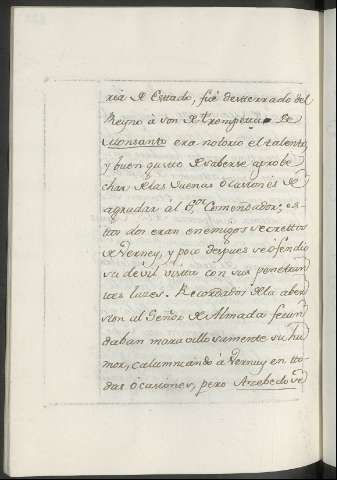 ria de Estado, fué desterrado del
Reyno à son de trompetas. De
Monsanto era notorio el talento,
y buen gusto de saberse aprobe
char de las buenas ocasiones de
agradar al Comendador; es-
tos dos eran enemigos secrettos
de Verney, y poco despues se ofendio
su devil vista con sus penetran
tes luzes. Recordados de la aber
sion al Señor de Almada fecun
daban maravillosamente su hu
mor, calumniando à Verney en tto-
das ocasiones, pero Azebedo se